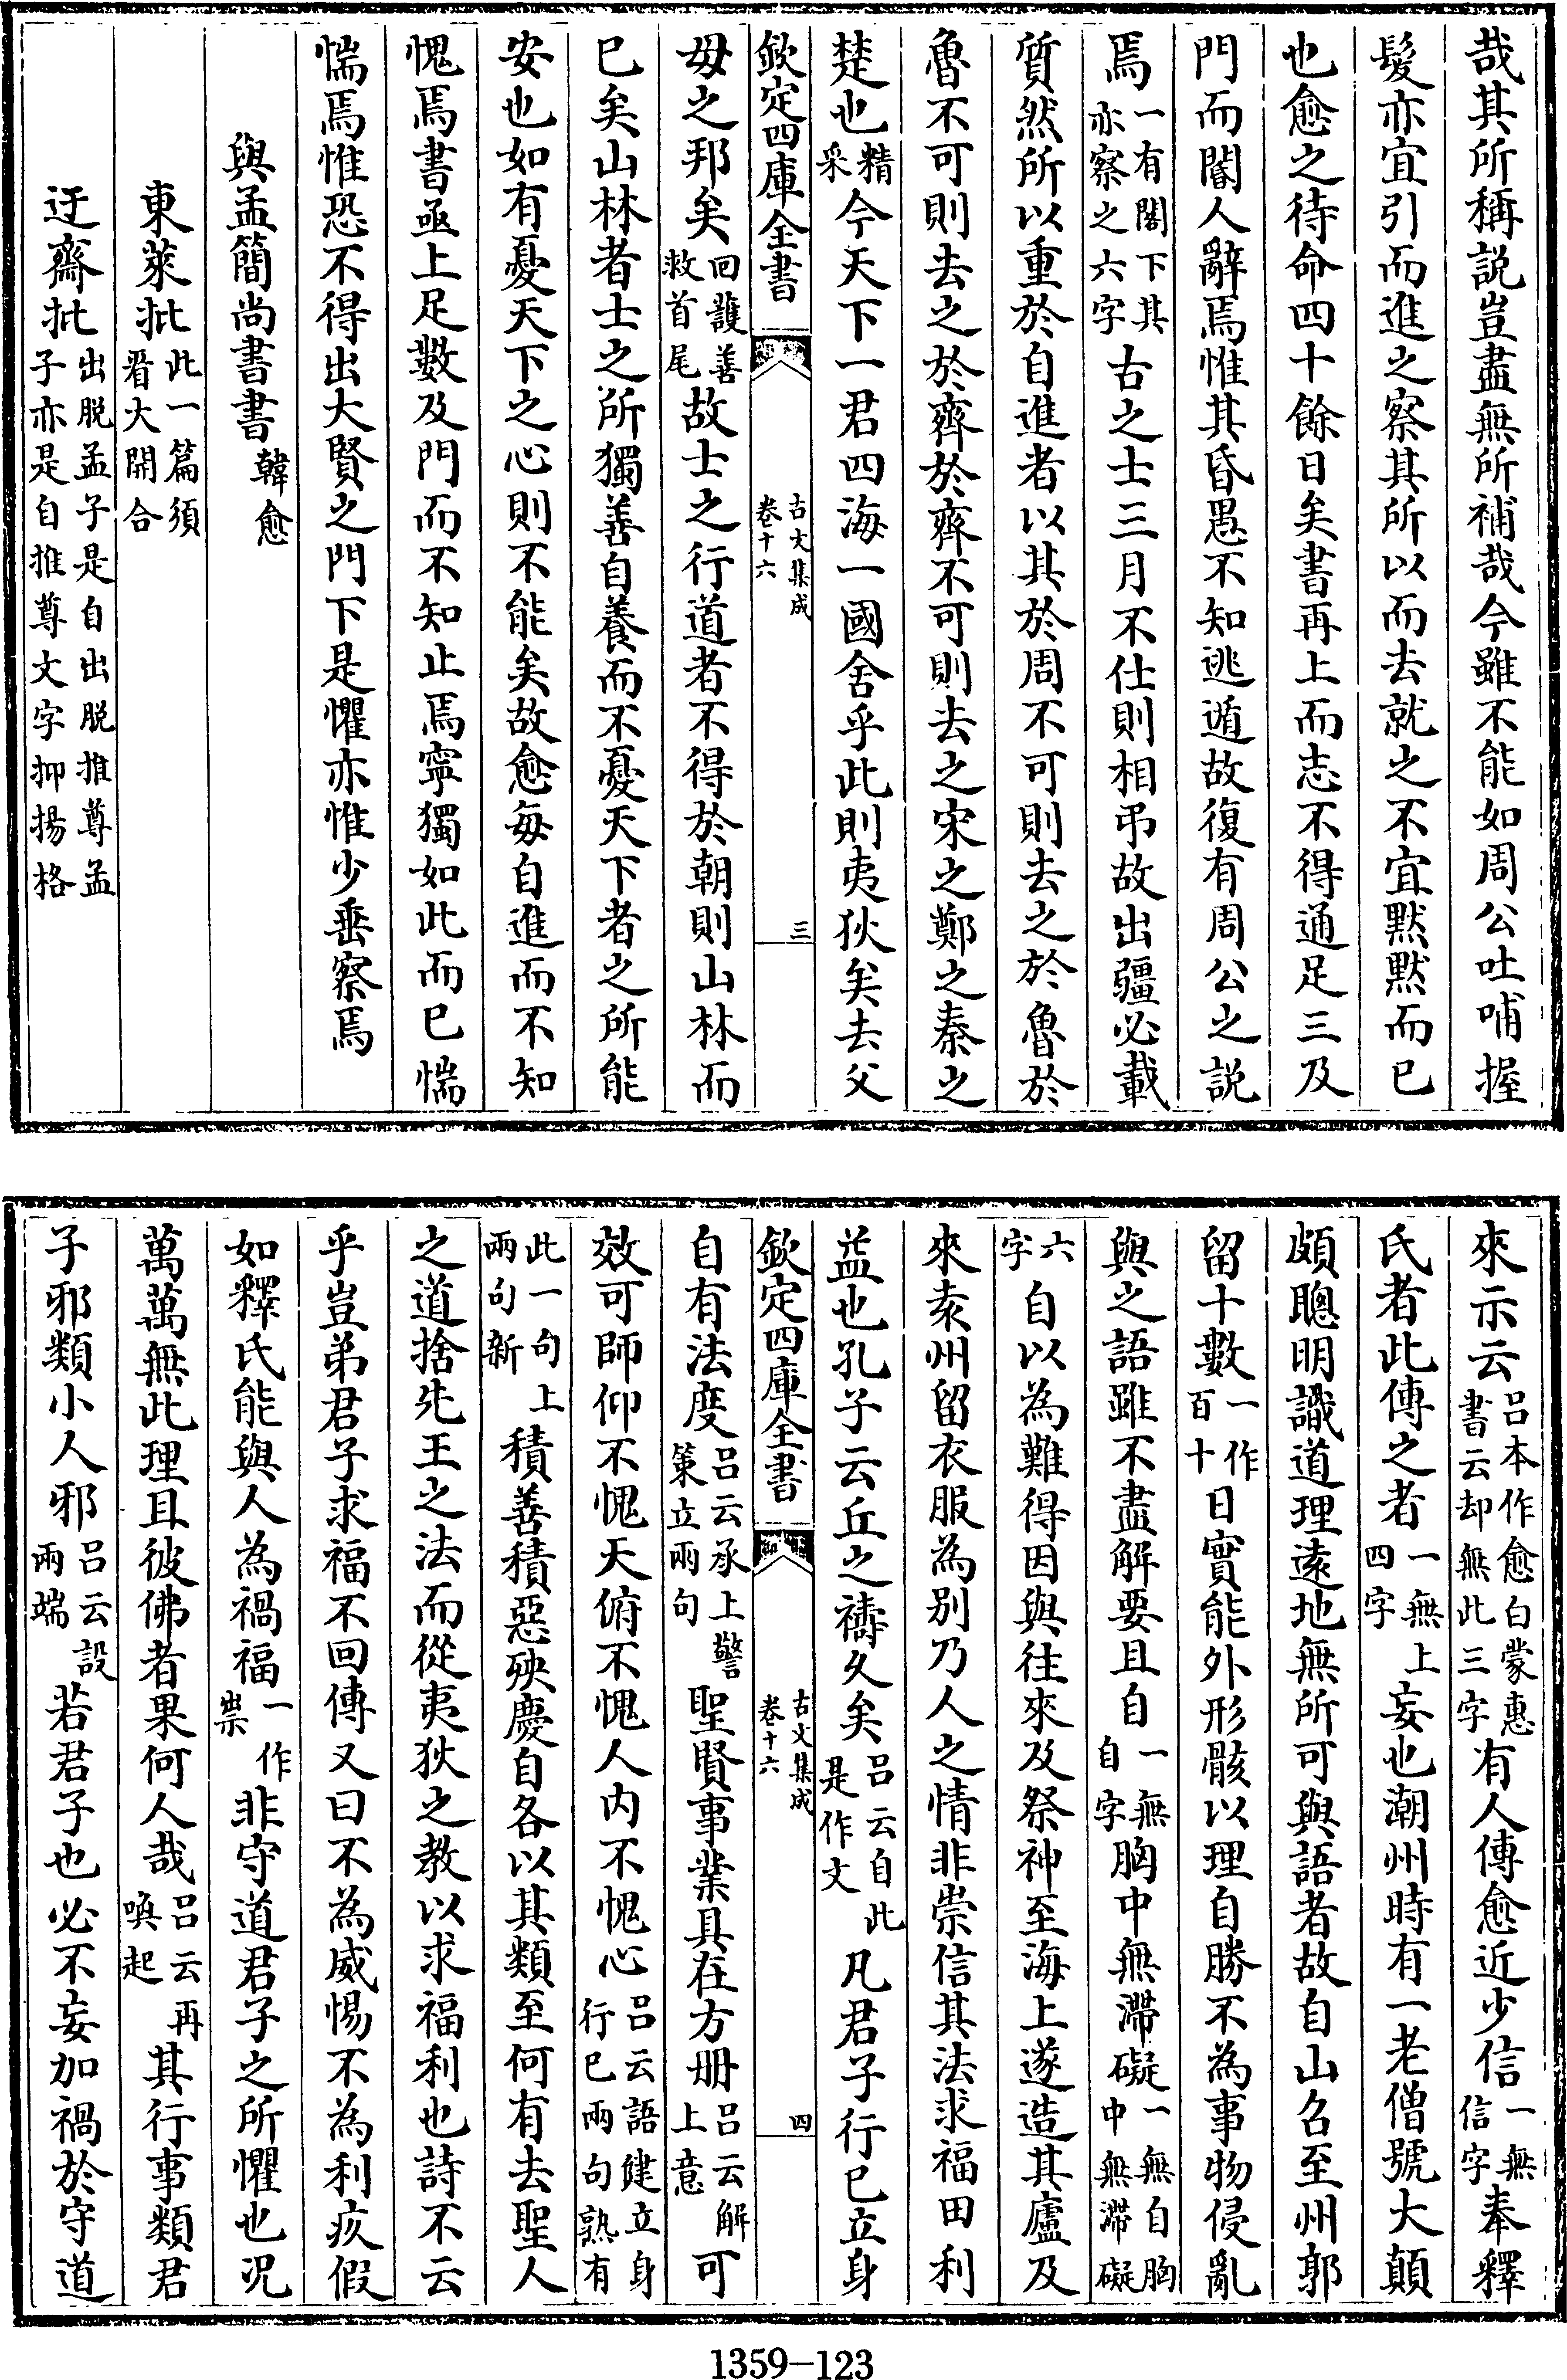 哉其所稱説豈盡無所補哉今雖不能如周公吐哺握
髮亦宜引而進之察其所以而去就之不宜默默而已
也愈之待命四十餘日矣書再上而志不得通足三及
門而閽人辭焉惟其昏愚不知逃遁故復有周公之説
焉一有閣下其亦察之六字古之士三月不仕則相弔故出疆必載
質然所以重於自進者以其於周不可則去之於魯於
魯不可則去之於齊於齊不可則去之宋之鄭之秦之
楚也精采今天下一君四海一國舍乎此則夷狄矣去父
欽定四庫全書 古文集成卷十六 三
毋之邦矣回護善救首尾故士之行道者不得於朝則山林而
已矣山林者士之所獨善自養而不憂天下者之所能
安也如有憂天下之心則不能矣故愈每自進而不知
愧焉書亟上足數及門而不知止焉寧獨如此而已惴
惴焉惟恐不得出大賢之門下是懼亦惟少垂察焉
與孟簡尚書書 韓愈
東萊批此一篇須看大開合
迂齋批出脱孟子是自出脱推尊孟子亦是自推尊文字抑揚格
來示云吕本作愈白蒙惠書云却無此三字有人傳愈近少信一無信字奉釋
氏者此傳之者一無上四字妄也潮州時有一老僧號大顛
頗聰明識道理遠地無所可與語者故自山召至州郭
留十數一作百十日實能外形骸以理自勝不為事物侵亂
與之語雖不盡解要且自一無自字胸中無滯礙一無自胸中無滯礙
六字自以為難得因與往來及祭神至海上遂造其廬及
來袁州留衣服為别乃人之情非崇信其法求福田利
益也孔子云丘之禱久矣吕云自此是作文凡君子行已立身
欽定四庫全書 古文集成卷十六 四
自有法度吕云承上警策立兩句聖賢事業具在方册吕云解上意可
效可師仰不愧天俯不愧人内不愧心吕云語健立身行已兩句熟有
此一句上兩句新積善積惡殃慶自各以其類至何有去聖人
之道捨先王之法而從夷狄之教以求福利也詩不云
乎豈弟君子求福不回傳又曰不為威惕不為利疚假
如釋氏能與人為禍福一作祟非守道君子之所懼也况
萬萬無此理且彼佛者果何人哉吕云再喚起其行事類君
子邪類小人邪吕云設兩端若君子也必不妄加禍於守道
1359-123